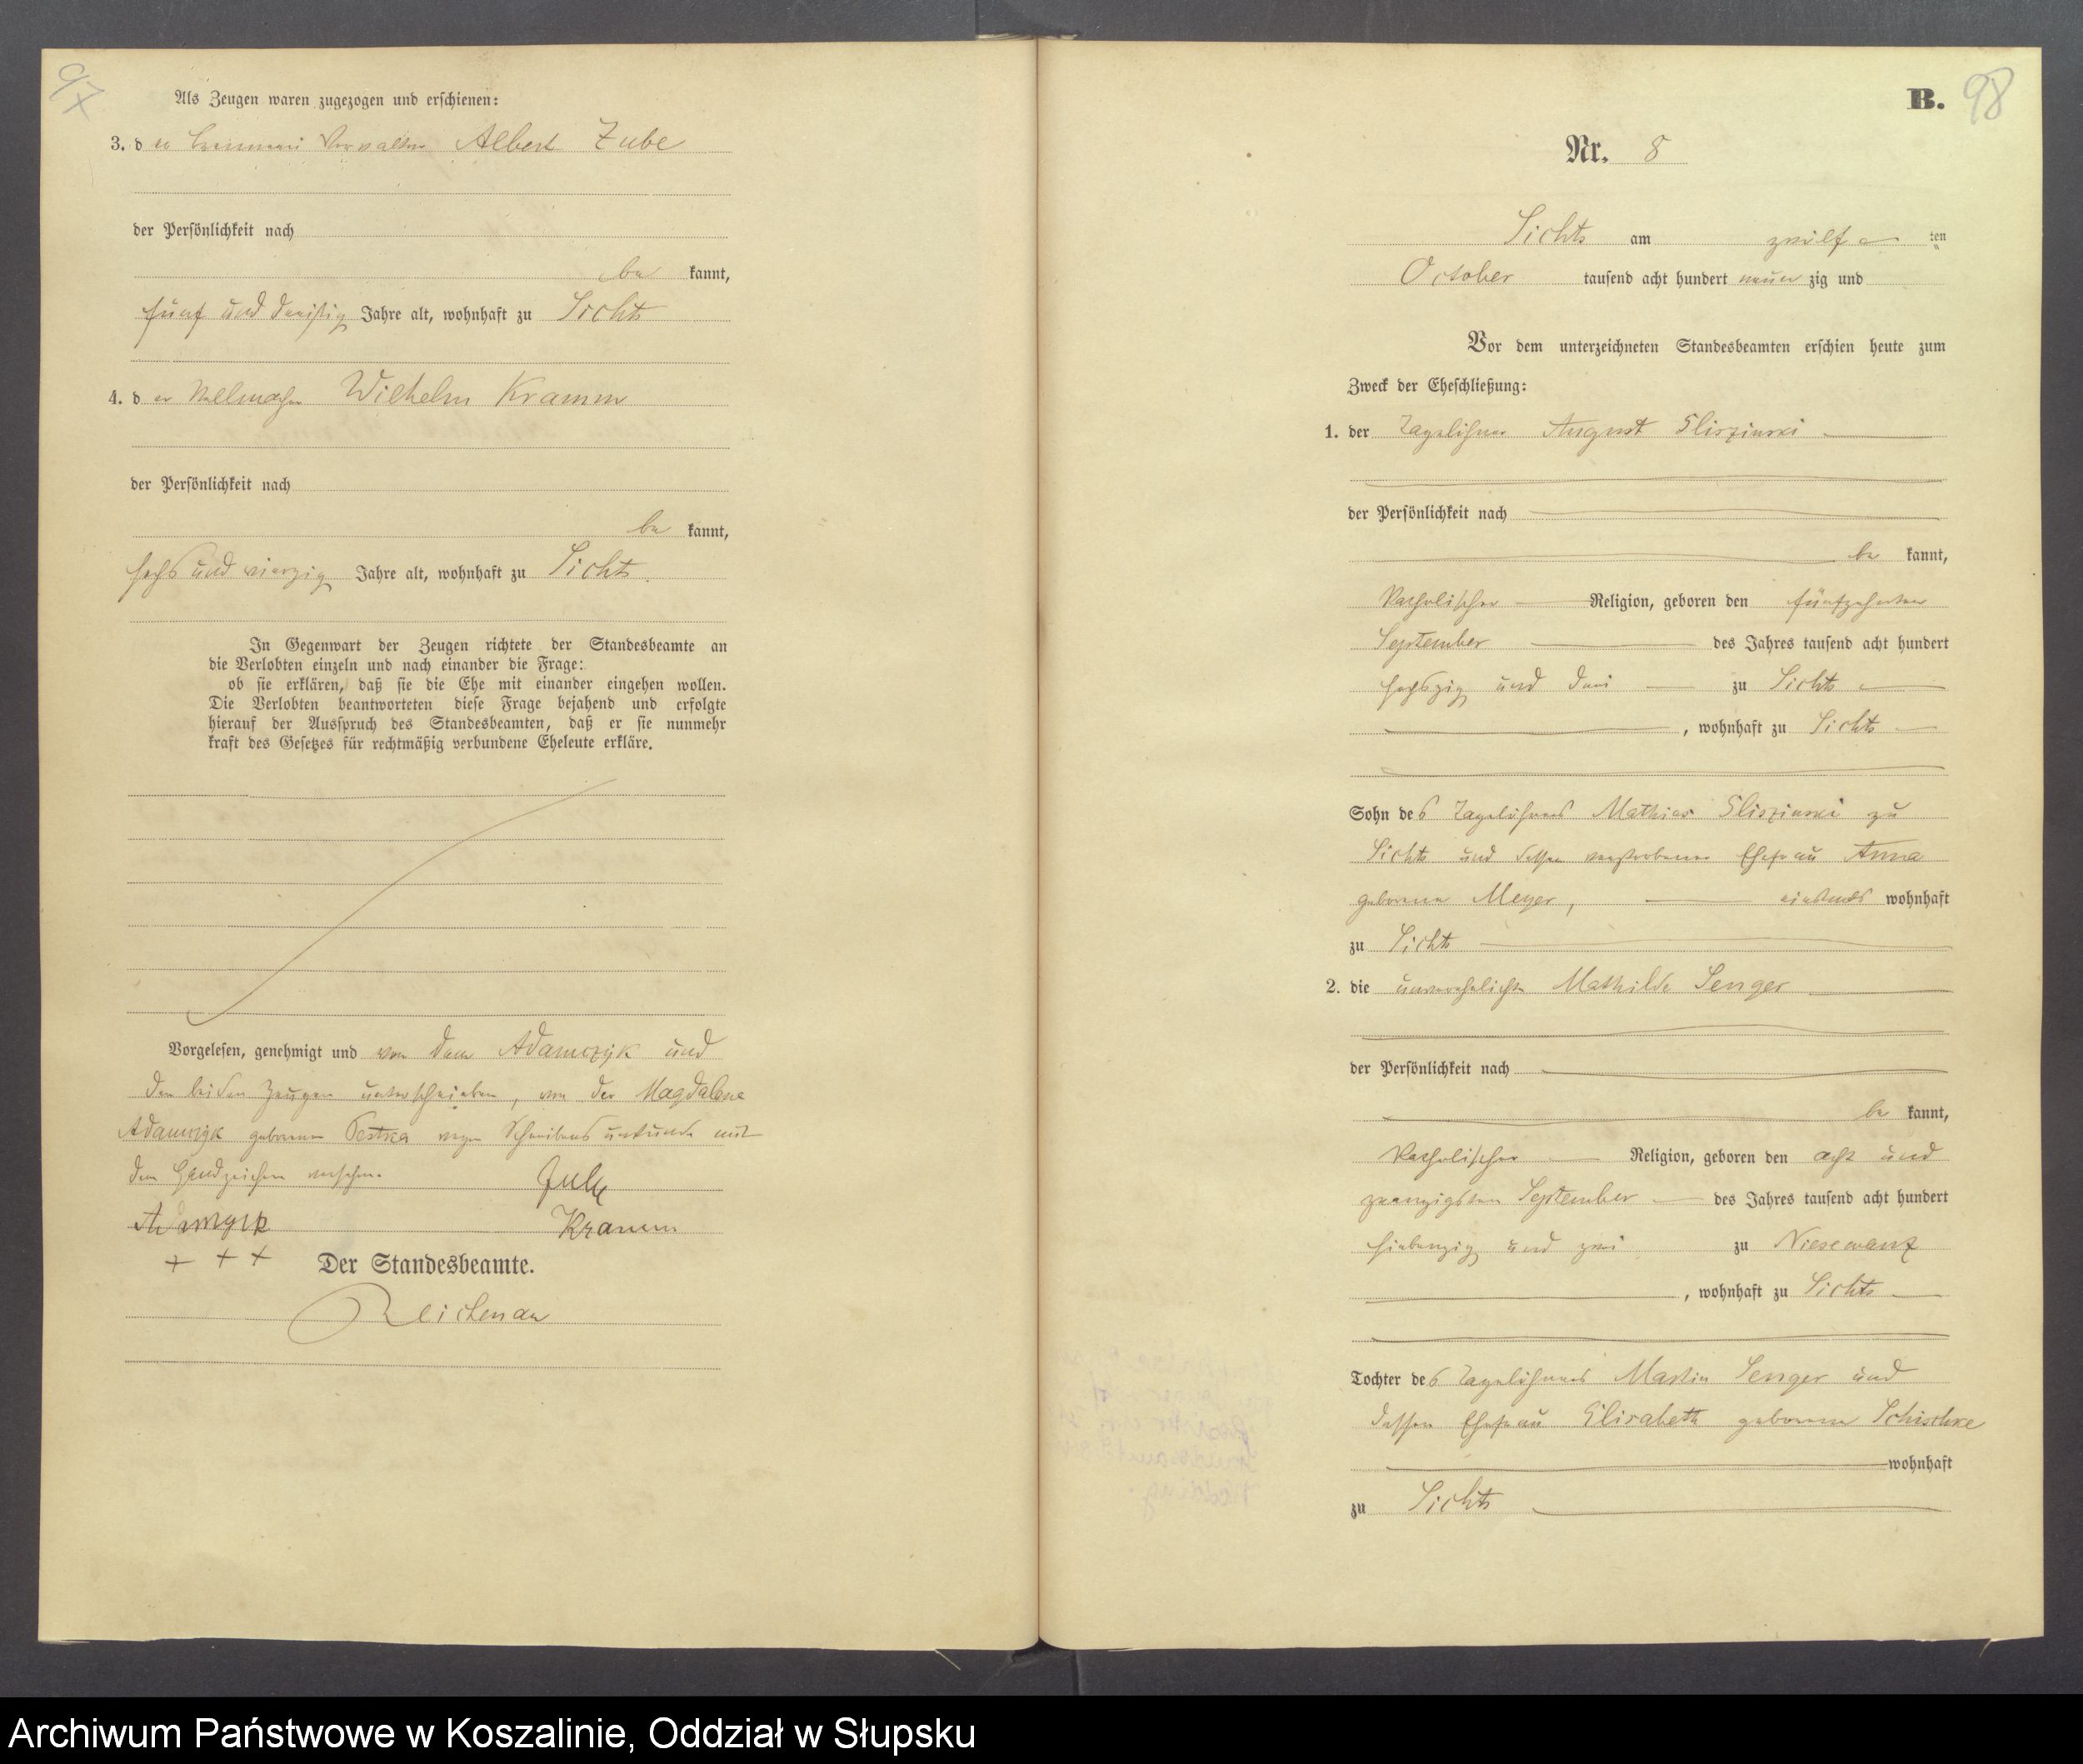 97
Als Zeugen waren zugezogen und erschienen:
3. der Verwalter Albert Zube
der Persönlichkeit nach
be kannt,
fünf und dreißig Jahre alt, wohnhaft zu Lichts
4. d er Wilhelm Kramm
der Persönlichkeit nach
be kannt,
sechs und vierzig Jahre alt, wohnhaft zu Lichts.
In Gegenwart der Zeugen richtete der Standesbeamte an
die Verlobten einzeln und nach einander die Frage:
ob sie erklären, daß sie die Ehe mit einander eingehen wollen.
Die Verlobten beantworteten diese Frage bejahend und erfolgte
hierauf der Ausspruch des Standesbeamten, daß er sie nunmehr
kraft des Gesetzes für rechtmäßig verbundene Eheleute erkläre.
Vorgelesen, genehmigt und von dem Adamczyk und
den beiden Zeugen unterschrieben, von der Magdalene
Adamczyk geborenen wegen Schreibensunkunde mit
dem Handzeichen versehen.
Zube
Adamczyk Kramm
+ + +
Der Standesbeamte.
Reichenau
B. 98
Nr. 8
Lichts am zwölf ten
October tausend acht hundert neun zig und
Vor dem unterzeichneten Standesbeamten erschien heute zum
Zweck der Eheschließung:
1. der Tagelöhner August Gliszinski
der Persönlichkeit nach
be kannt,
katholischer Religion, geboren den fünfzehnten
September des Jahres tausend acht hundert
sechszig und drei zu Lichts
, wohnhaft zu Lichts
Sohn des Tagelöhners Mathias Gliszinski zu
Lichts und dessen verstorbenen Ehefrau Anna
geborenen Meyer, wohnhaft
zu Lichts
2. die unverehelichte Mathilde Senger
der Persönlichkeit nach
be kannt,
katholischer Religion, geboren den acht und
zwanzigsten September des Jahres tausend acht hundert
siebenzig und zwei zu Niesewanz
, wohnhaft zu Lichts
Tochter des Tagelöhners Martin Senger und
dessen Ehefrau Elisabeth geborenen
wohnhaft
zu Lichts
Archiwum Państwowe w Koszalinie, Oddział w Słupsku